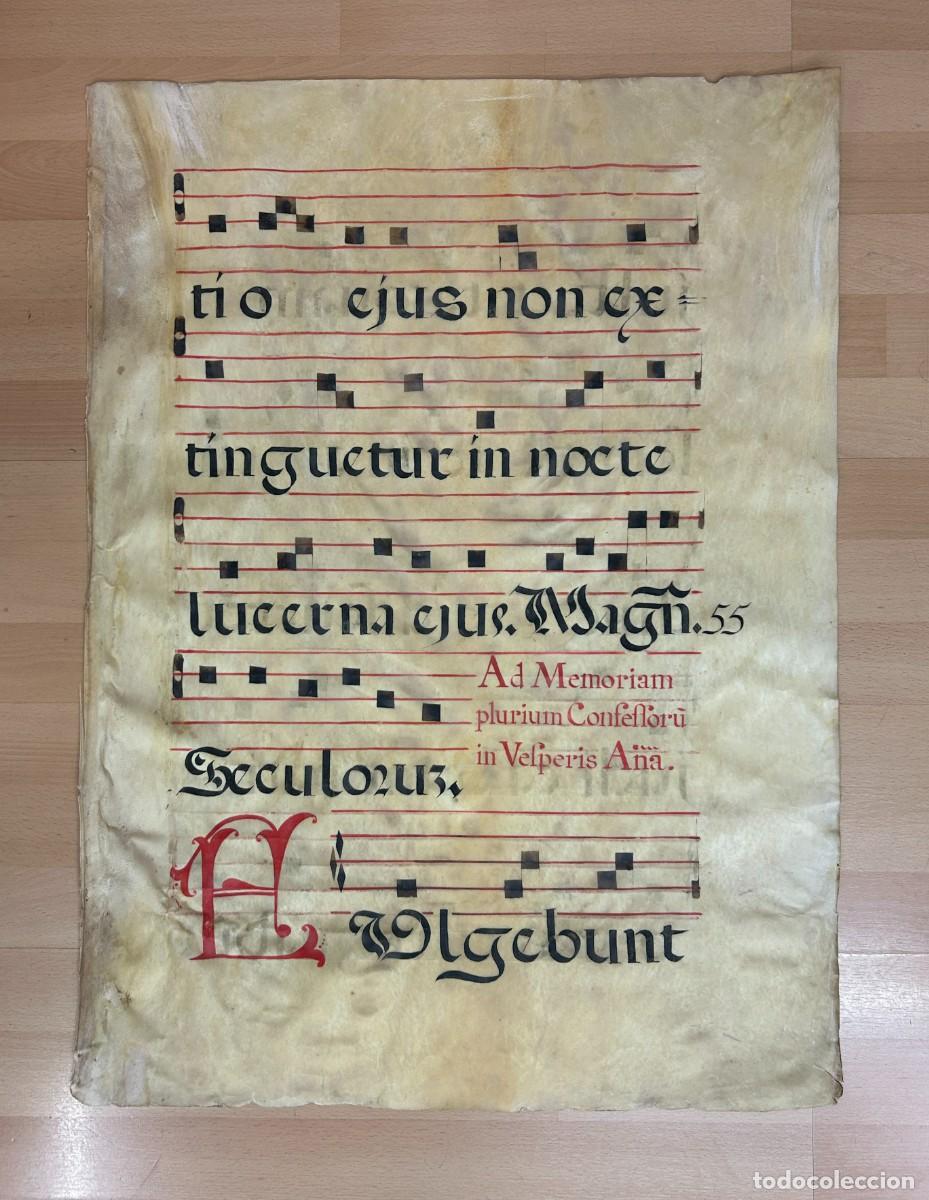 tio ejus non ex=
tinguetur in nocte
lucerna ejus. Magñ. 55
Ad Memoriam
plurium Confeſſorũ
in Veſperis Aña.
Seculoruz.
FVlgebunt
todocoleccion